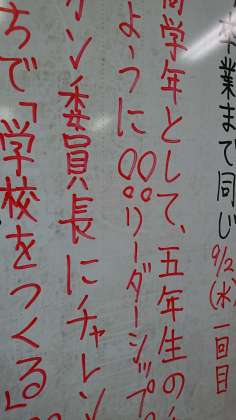 卒業まで同じ 9/2(水) 一回目
高学年として、五年生の
ように○○。○○。リーダーシップ
ソン委員長にチャレン
ちで「学校をつくる」